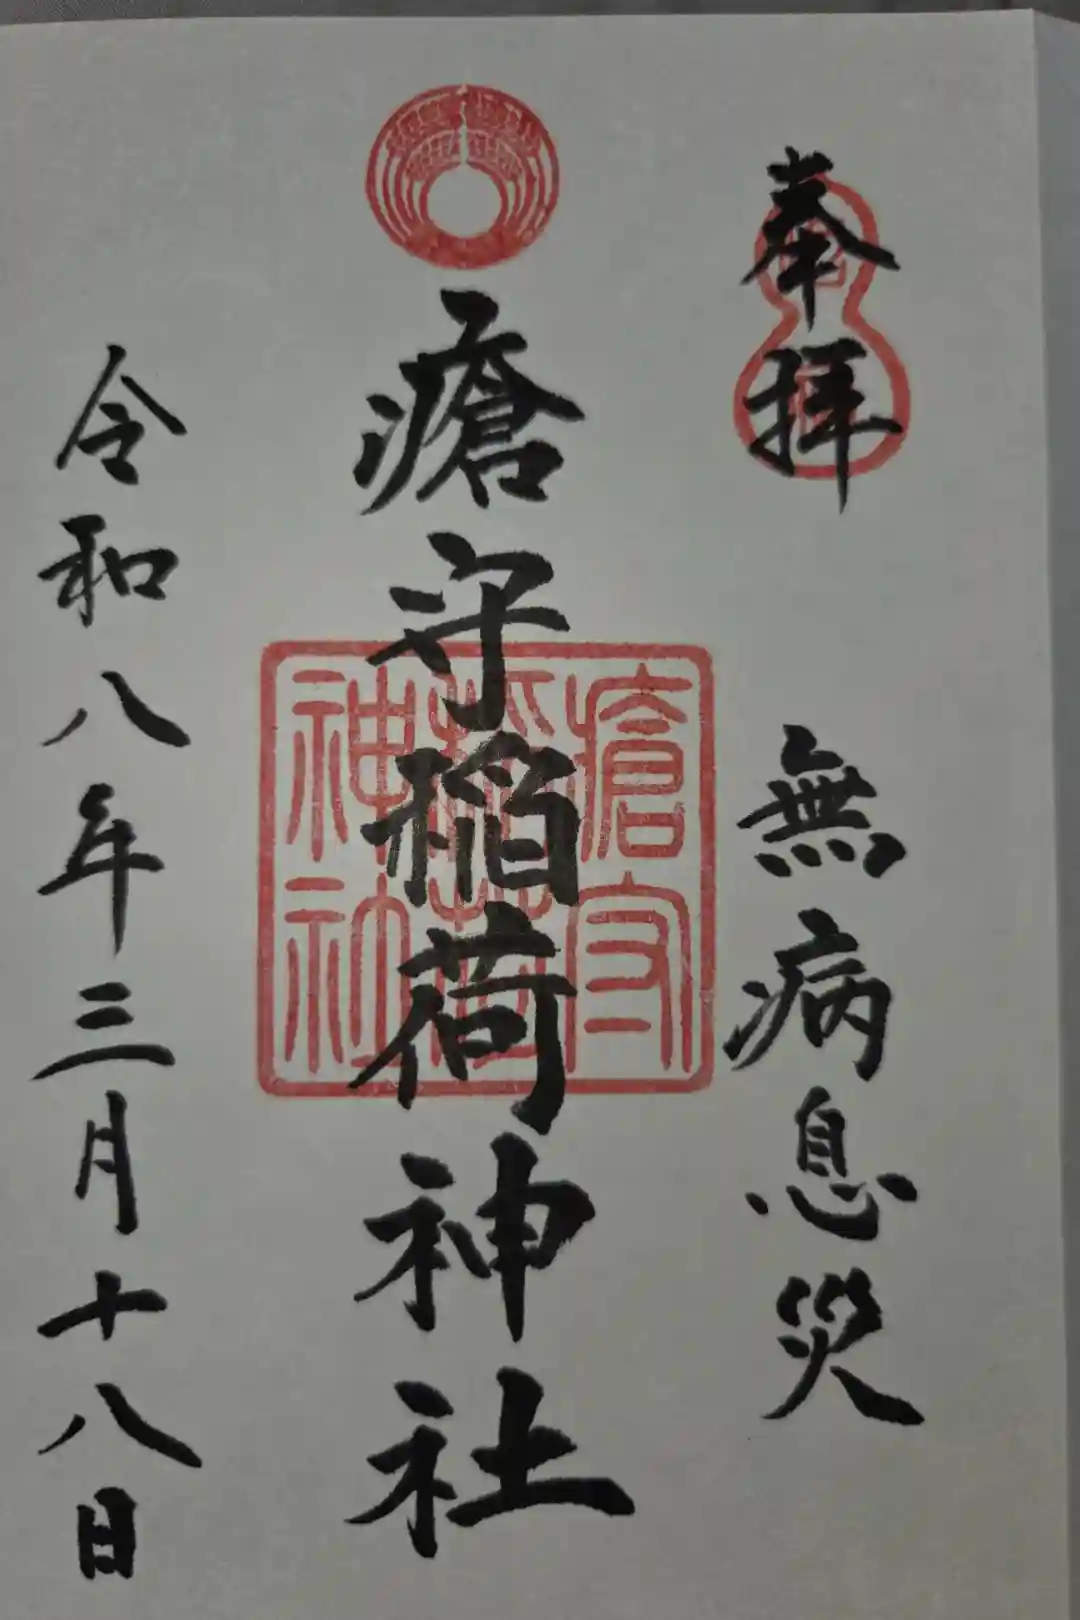 奉拝
無病息災
瘡守稲荷神社
瘡守
稲荷
神社
令和八年三月十八日